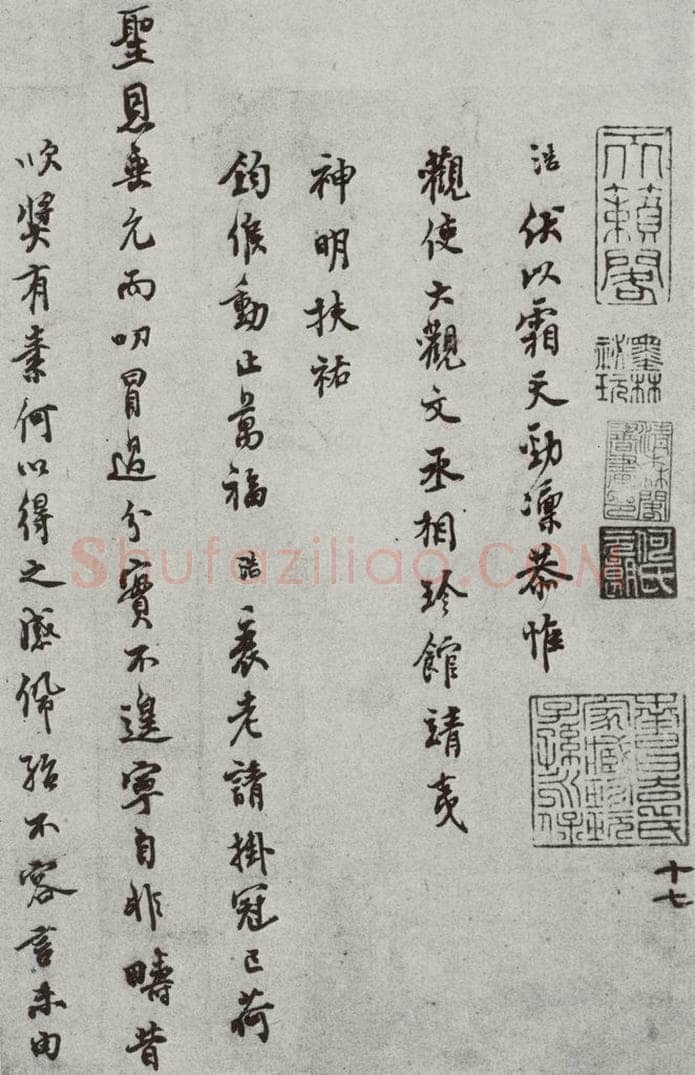 天籟閣
墨林
祕玩
何氏
十七
浩伏以霜天勁凜恭惟
觀使大觀文丞相珍館靖夷
神明扶祐
鈞候動止萬福浩衰老請掛冠已荷
聖恩垂允而叨冒過分實不遑寧自非疇昔
吹獎有素何以得之感佩殆不容言未由
Shufaziliao.COM